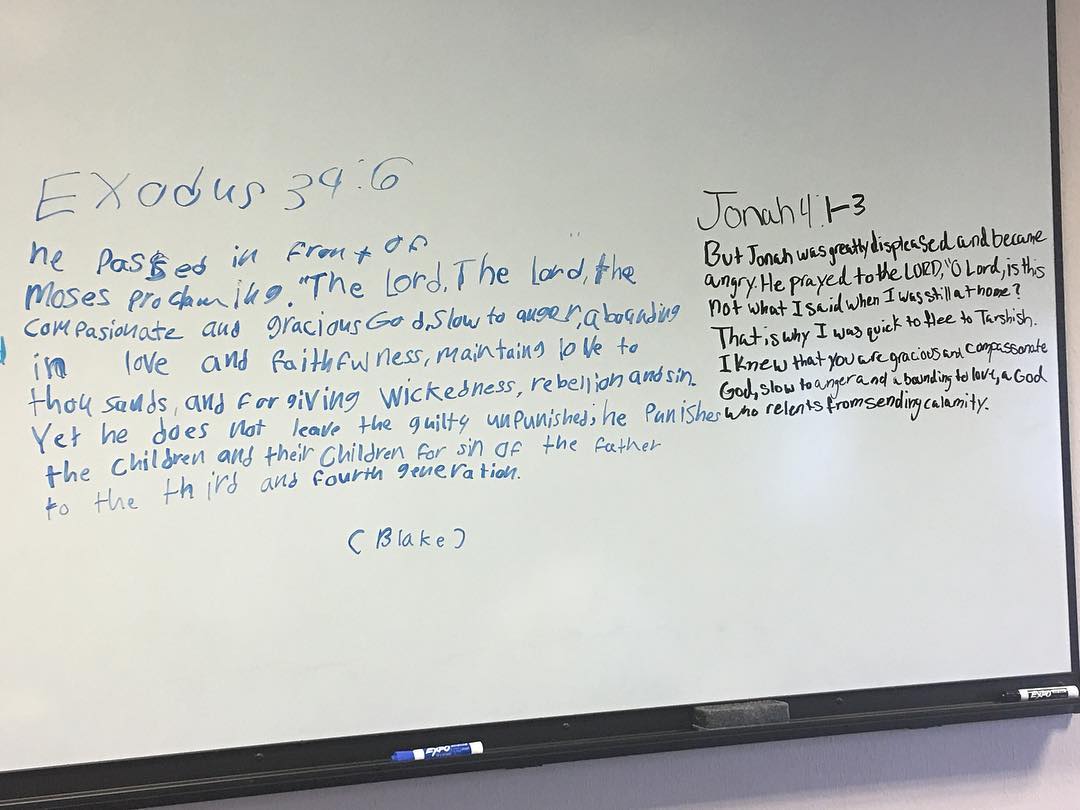 EXodus 34:6
he Passed in front of
Moses proclaming. "The Lord, The Lord, the
compasionate and gracious God, Slow to anger, abounding
in love and faithfulness, maintaing love to
thousands, and forgiving Wickedness, rebellion and sin.
Yet he does not leave the guilty unpunished; he Punishes
the children and their children for sin of the father
to the third and fourth generation.
(Blake)
Jonah 4:1-3
But Jonah was greatly displeased and became
angry. He prayed to the LORD, "O Lord, is this
not what I said when I was still at home?
That is why I was quick to flee to Tarshish.
I knew that you are gracious and compassonate
God, slow to anger and abounding to love, a God
who relents from sending calamity.
EXPO
EXPO